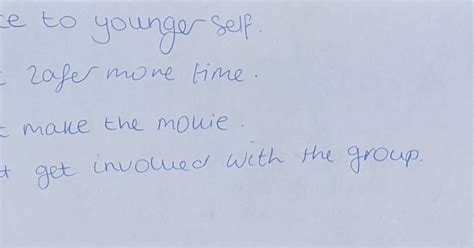 ce to younger self.
t Zafer more time.
t make the movie.
t get involved with the group.